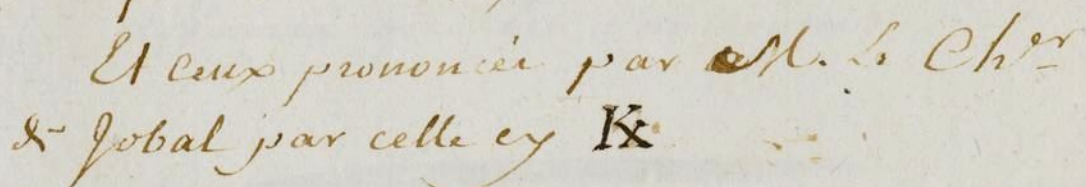 Et ceux prononcés par M. le Cher
de Jobal par celle cy K